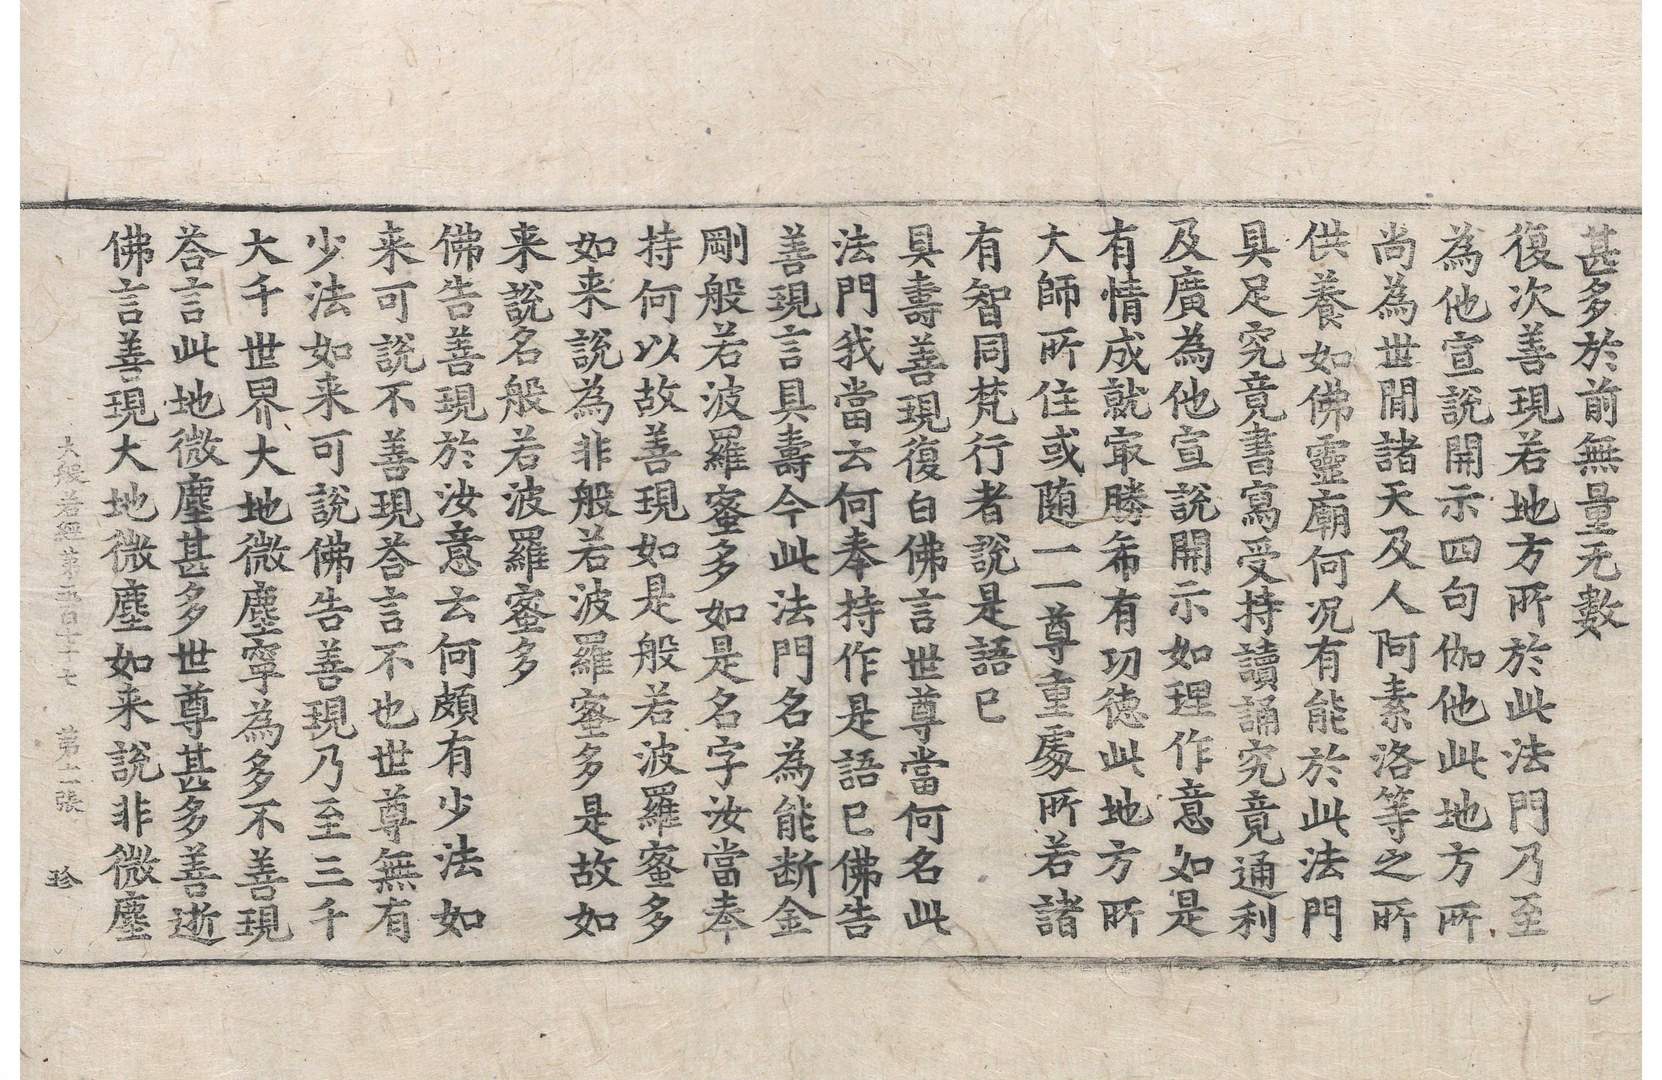 甚多於前無量无數
復次善現若地方所於此法門乃至
為他宣說開示四句伽他此地方所
尚為世閒諸天及人阿素洛等之所
供養如佛靈廟何況有能於此法門
具足究竟書寫受持讀誦究竟通利
及廣為他宣說開示如理作意如是
有情成就㝡勝希有功德此地方所
大師所住或隨一一尊重處所若諸
有智同梵行者說是語已
具壽善現復白佛言世尊當何名此
法門我當云何奉持作是語已佛告
善現言具壽今此法門名為能断金
剛般若波羅蜜多如是名字汝當奉
持何以故善現如是般若波羅蜜多
如来說為非般若波羅蜜多是故如
来說名般若波羅蜜多
佛告善現於汝意云何頗有少法如
来可說不善現荅言不也世尊無有
少法如来可說佛告善現乃至三千
大千世界大地微塵寧為多不善現
荅言此地微塵甚多世尊甚多善逝
佛言善現大地微塵如来說非微塵
大般若經第五百七十七 第十一張 珍